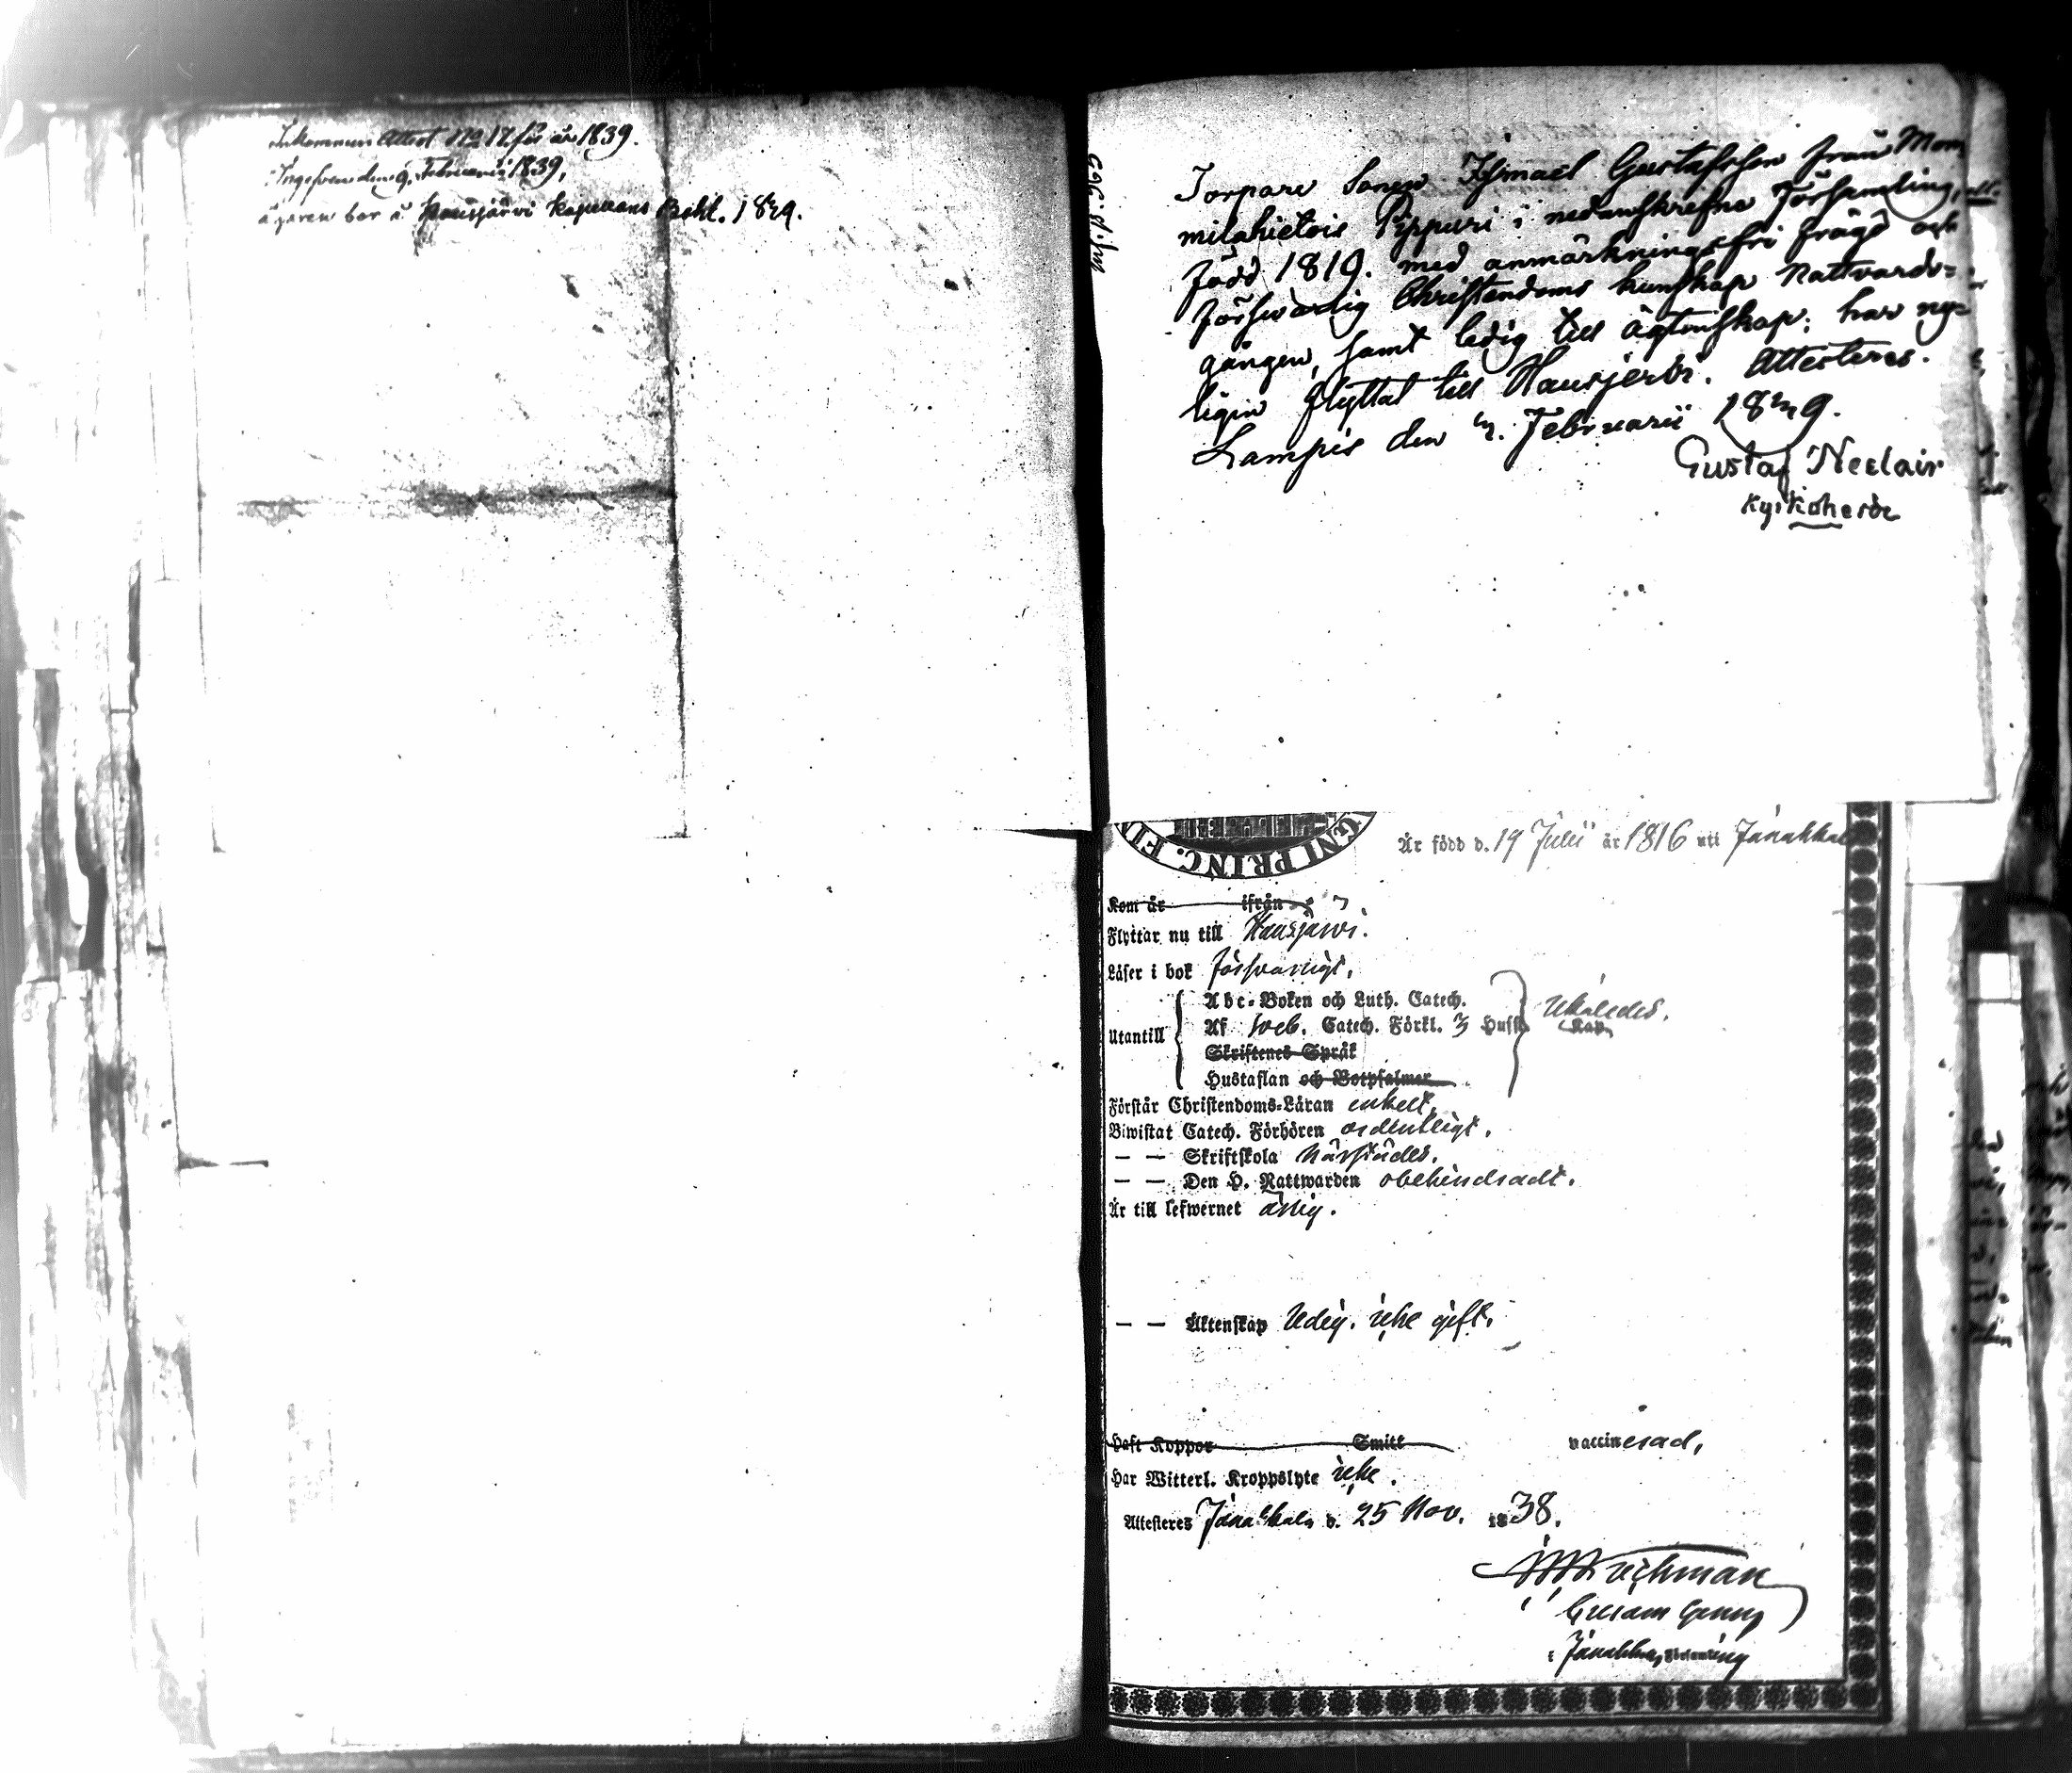 Inkommen Attest No 17 för år 1839.
Ingifven den 9. Februarii 1839,
ägaren bor å Hausjärvi Kapellans Bohl. 1839.
Torpare Sonen Ismael Gustafsson från
milahietois Pippuri i nedanskrefne Församling,
född 1819. med anmärkningsfri frägd och
försvarlig Christendoms kunskap Nattvards-
gången, samt ledig till ägtenskap; har ny-
ligen flyttat till Hausjervi. Attesteres.
Lampis den 3. Februarii 1839.
Gustaf Neclair
Kyrkoherde
GNI PRINC. FI
Är född d. 19 Julii år 1816 uti Janakkal
Kom år ifrån
Flyttar nu till Hausjärvi.
Läser i bok försvarligt,
Utantill
Abc-Boken och Luth. Catech.
Af Sveb. Catech. Förkl. 3 Hufst. likaledes.
Skriftenes Språk
Hustaflan och Botpsalmer
Förstår Christendoms-Läran enkelt,
Biwistat Catech. Förhören ordentligt,
— — Skriftskola härstädes,
— — Den H. Nattwarden obehindradt.
Är till lefwernet ärlig.
— — Äktenskap ledig. icke gift,
Haft Koppor Smitt vaccinerad,
Har Witterl. Kroppslyte icke.
Attesteres Janakkala d. 25 Nov. 1838.
Janakkala Församling